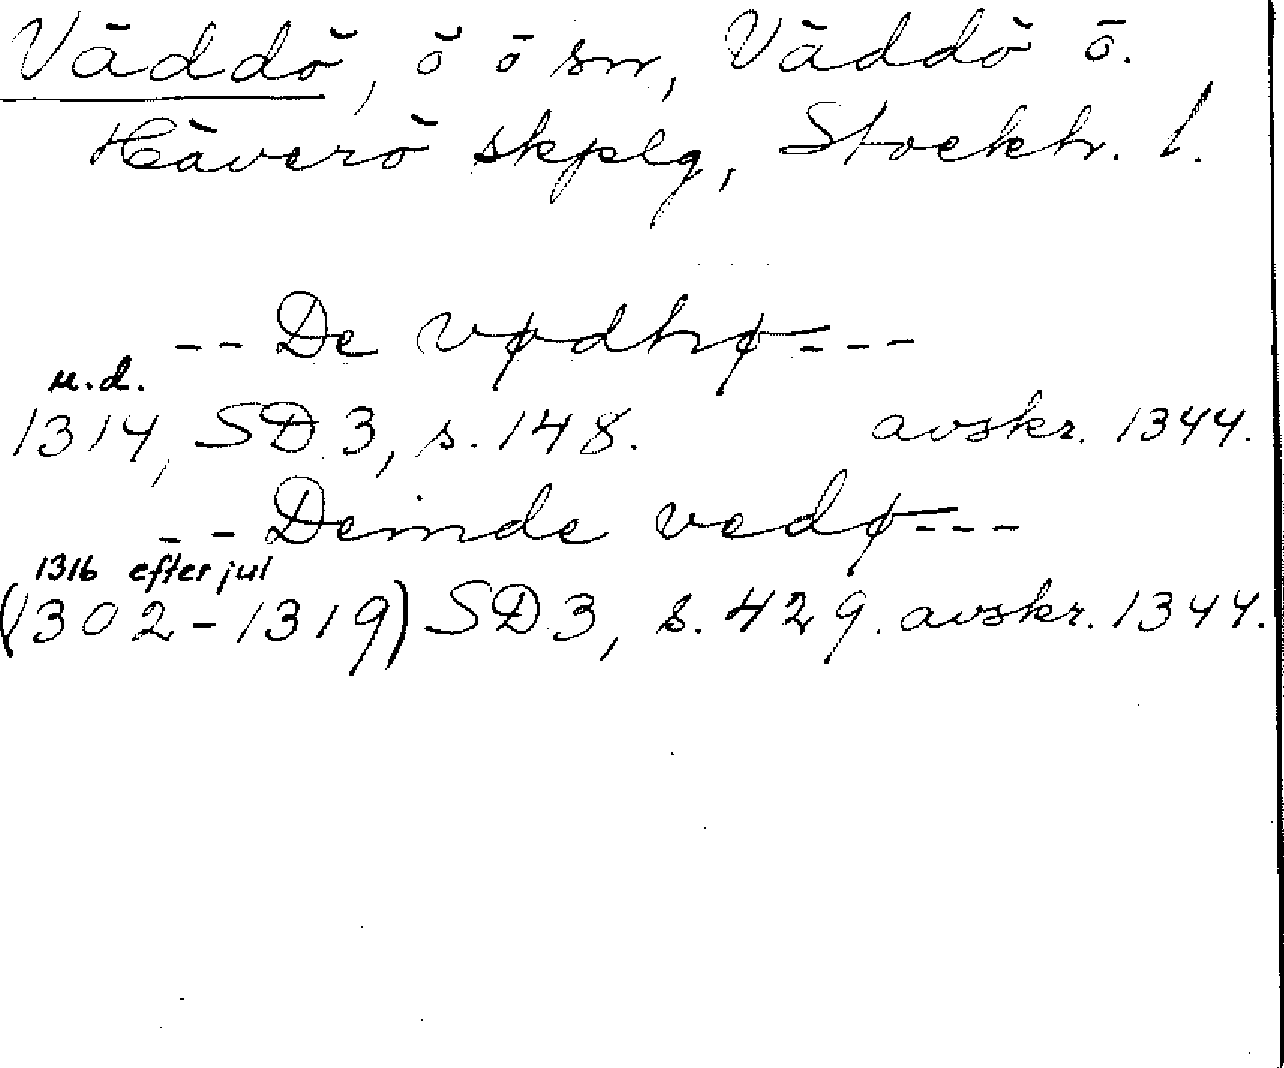 Väddö, ö ö sn, Väddö ö.
Häverö skplg, Stockh. l.
-- De vødhø ---
u.d.
1314, SD 3, s. 148. avskr. 1344.
-- Deinde vedø ---
1316 efter jul
(1302-1319) SD 3, s. 429. avskr. 1344.